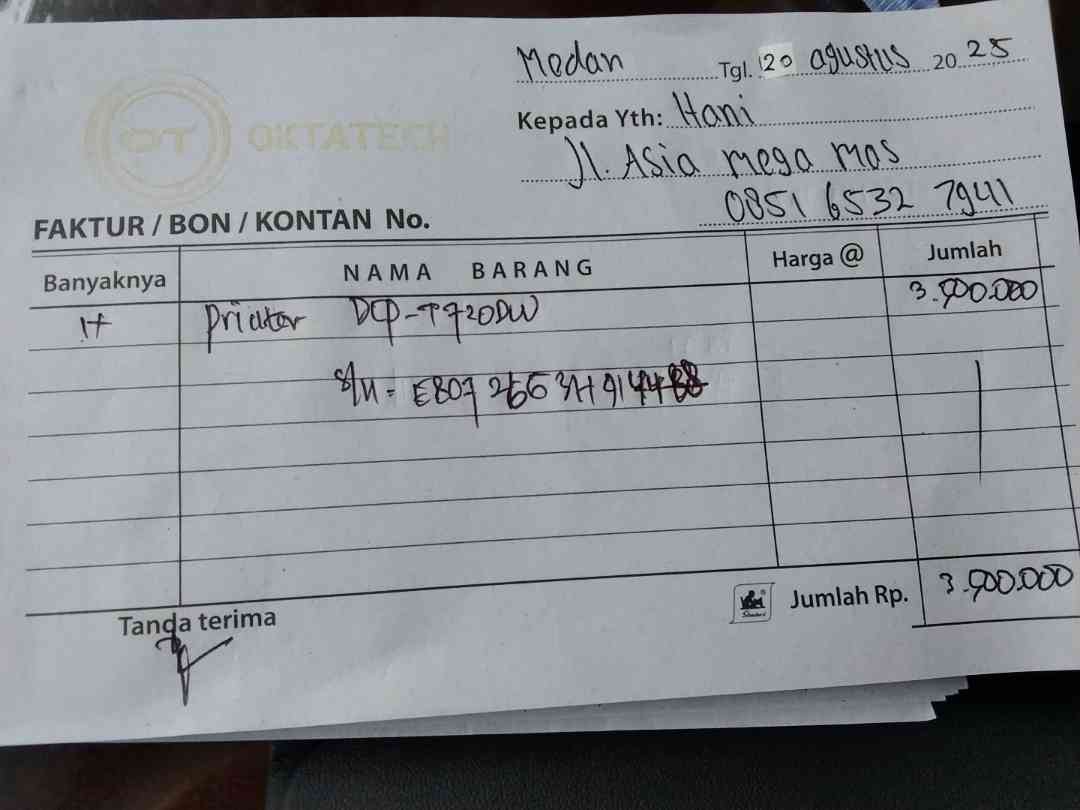 Medan Tgl. 20 agustus 2025
OT OKTATECH
Kepada Yth: Hani
Jl. Asia mega mas
0851 6532 7941
FAKTUR / BON / KONTAN No.
Banyaknya NAMA BARANG Harga @ Jumlah
printer DCP-T720DW 3.900.000
S/N = E807
Jumlah Rp. 3.900.000
Tanda terima